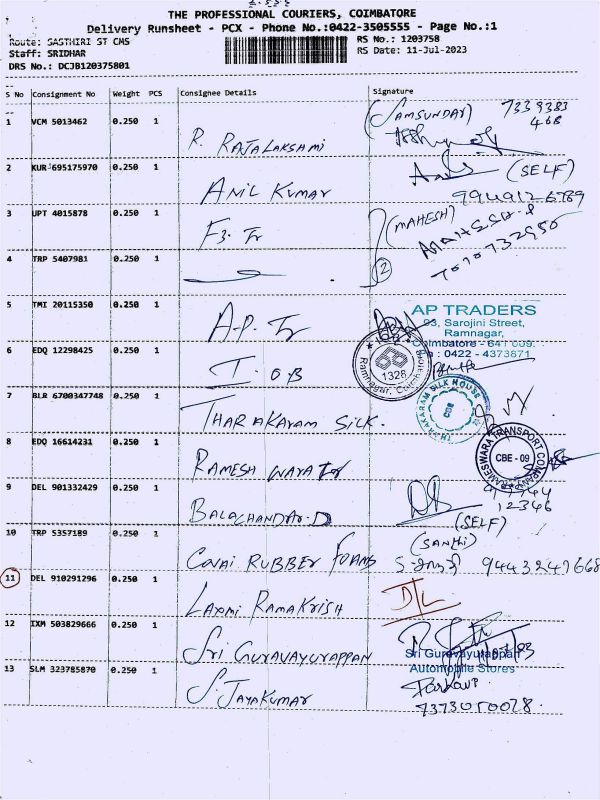 THE PROFESSIONAL COURIERS, COIMBATORE
Delivery Runsheet - PCX - Phone No.:0422-3505555 - Page No.:1
Route: SASTHIRI ST CMS
RS No.: 1203758
Staff: SRIDHAR
RS Date: 11-Jul-2023
DRS No.: DCJB120375801
S No Consignment No Weight PCS Consignee Details Signature
1 VCM 5013462 0.250 1 R. RAJALAKSHMI (SAMSUNDAR) 7339383
468
2 KUR 695175970 0.250 1 ANIL KUMAR (SELF)
3 UPT 4015878 0.250 1 F3. Tr (MAHESH)
MAHESH
4 TRP 5407981 0.250 1 2
5 TMI 20115350 0.250 1 A-P. Tr AP TRADERS
93, Sarojini Street,
Ramnagar,
Coimbatore - 641 009.
: 0422 - 4373871
6 EDQ 12298425 1 0.250 I.O.B 1328
Ramnagar, Coimbatore
7 BLR 6700347748 0.250 1 THARAKARAM SILK. THARAKARAM SILK HOUSE
CBE
8 EDQ 16614231 0.250 1 RAMESH WARA Tr RAMESWARA TRANSPORT COMPANY
CBE - 09
9 DEL 901332429 0.250 1 BALACHANDAR.D
12346
(SELF)
10 TRP 5357189 0.250 1 COVAI RUBBER FOAMS (SANTHI)
9443247668
11 DEL 910291296 0.250 1 LAXMI RAMAKRISH D/L
12 IXM 503829666 0.250 1 SRI GURUVAYURAPPAN
Sri Guruvayurappan
Automobile Stores
13 SLM 323785870 0.250 1 S. JAYAKUMAR
7373050028